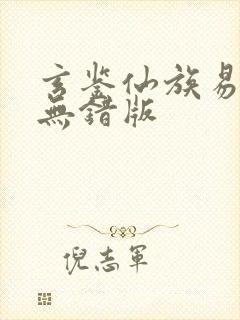 玄鉴仙族易
無錯版
倪志軍